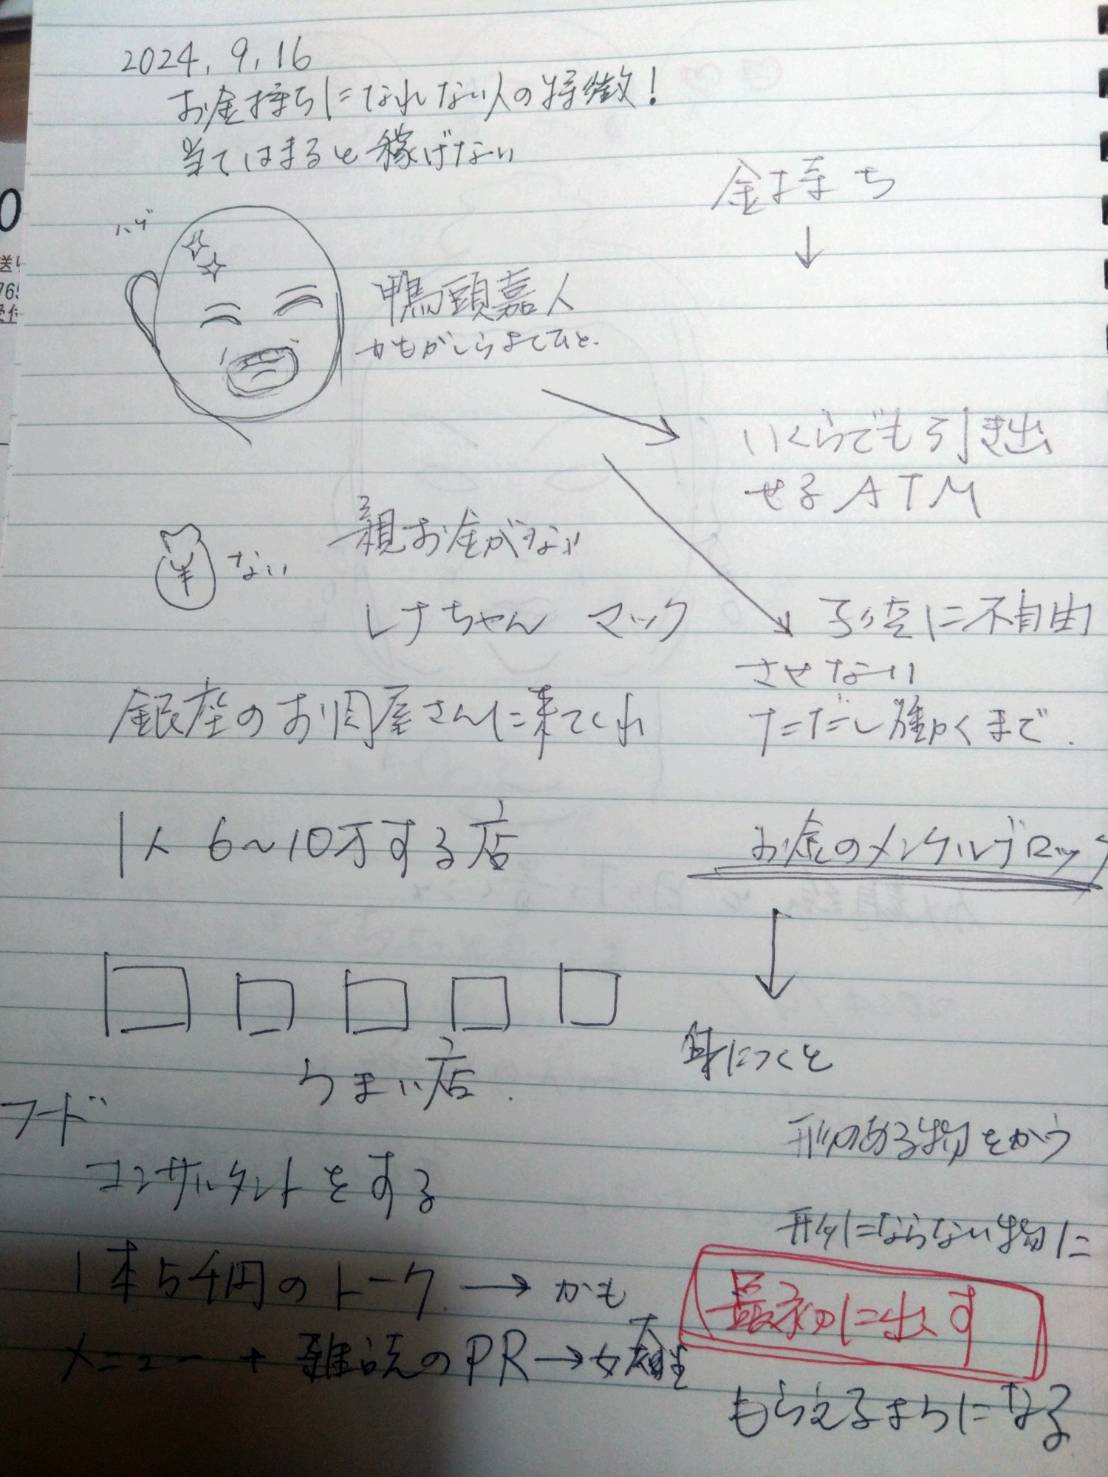 2024.9.16
お金持ちになれない人の特徴!
当てはまると稼げない
ハゲ
鴨頭嘉人
かもがしらよしひと.
¥ ない
親お金がない
レナちゃん マック
銀座のお肉屋さんに来てくれ
1人 6~10万する店
うまい店.
フード
コンサルタントをする
1本5千円のトーク → かも
メニュー + 雑誌のPR →
金持ち
↓
いくらでも引き出
せるATM
子供に不自由
させない
ただし働くまで.
お金のメンタルブロック
↓
身につくと
形のある物をかう
形にならない物に
最初に出す
もらえるようになる